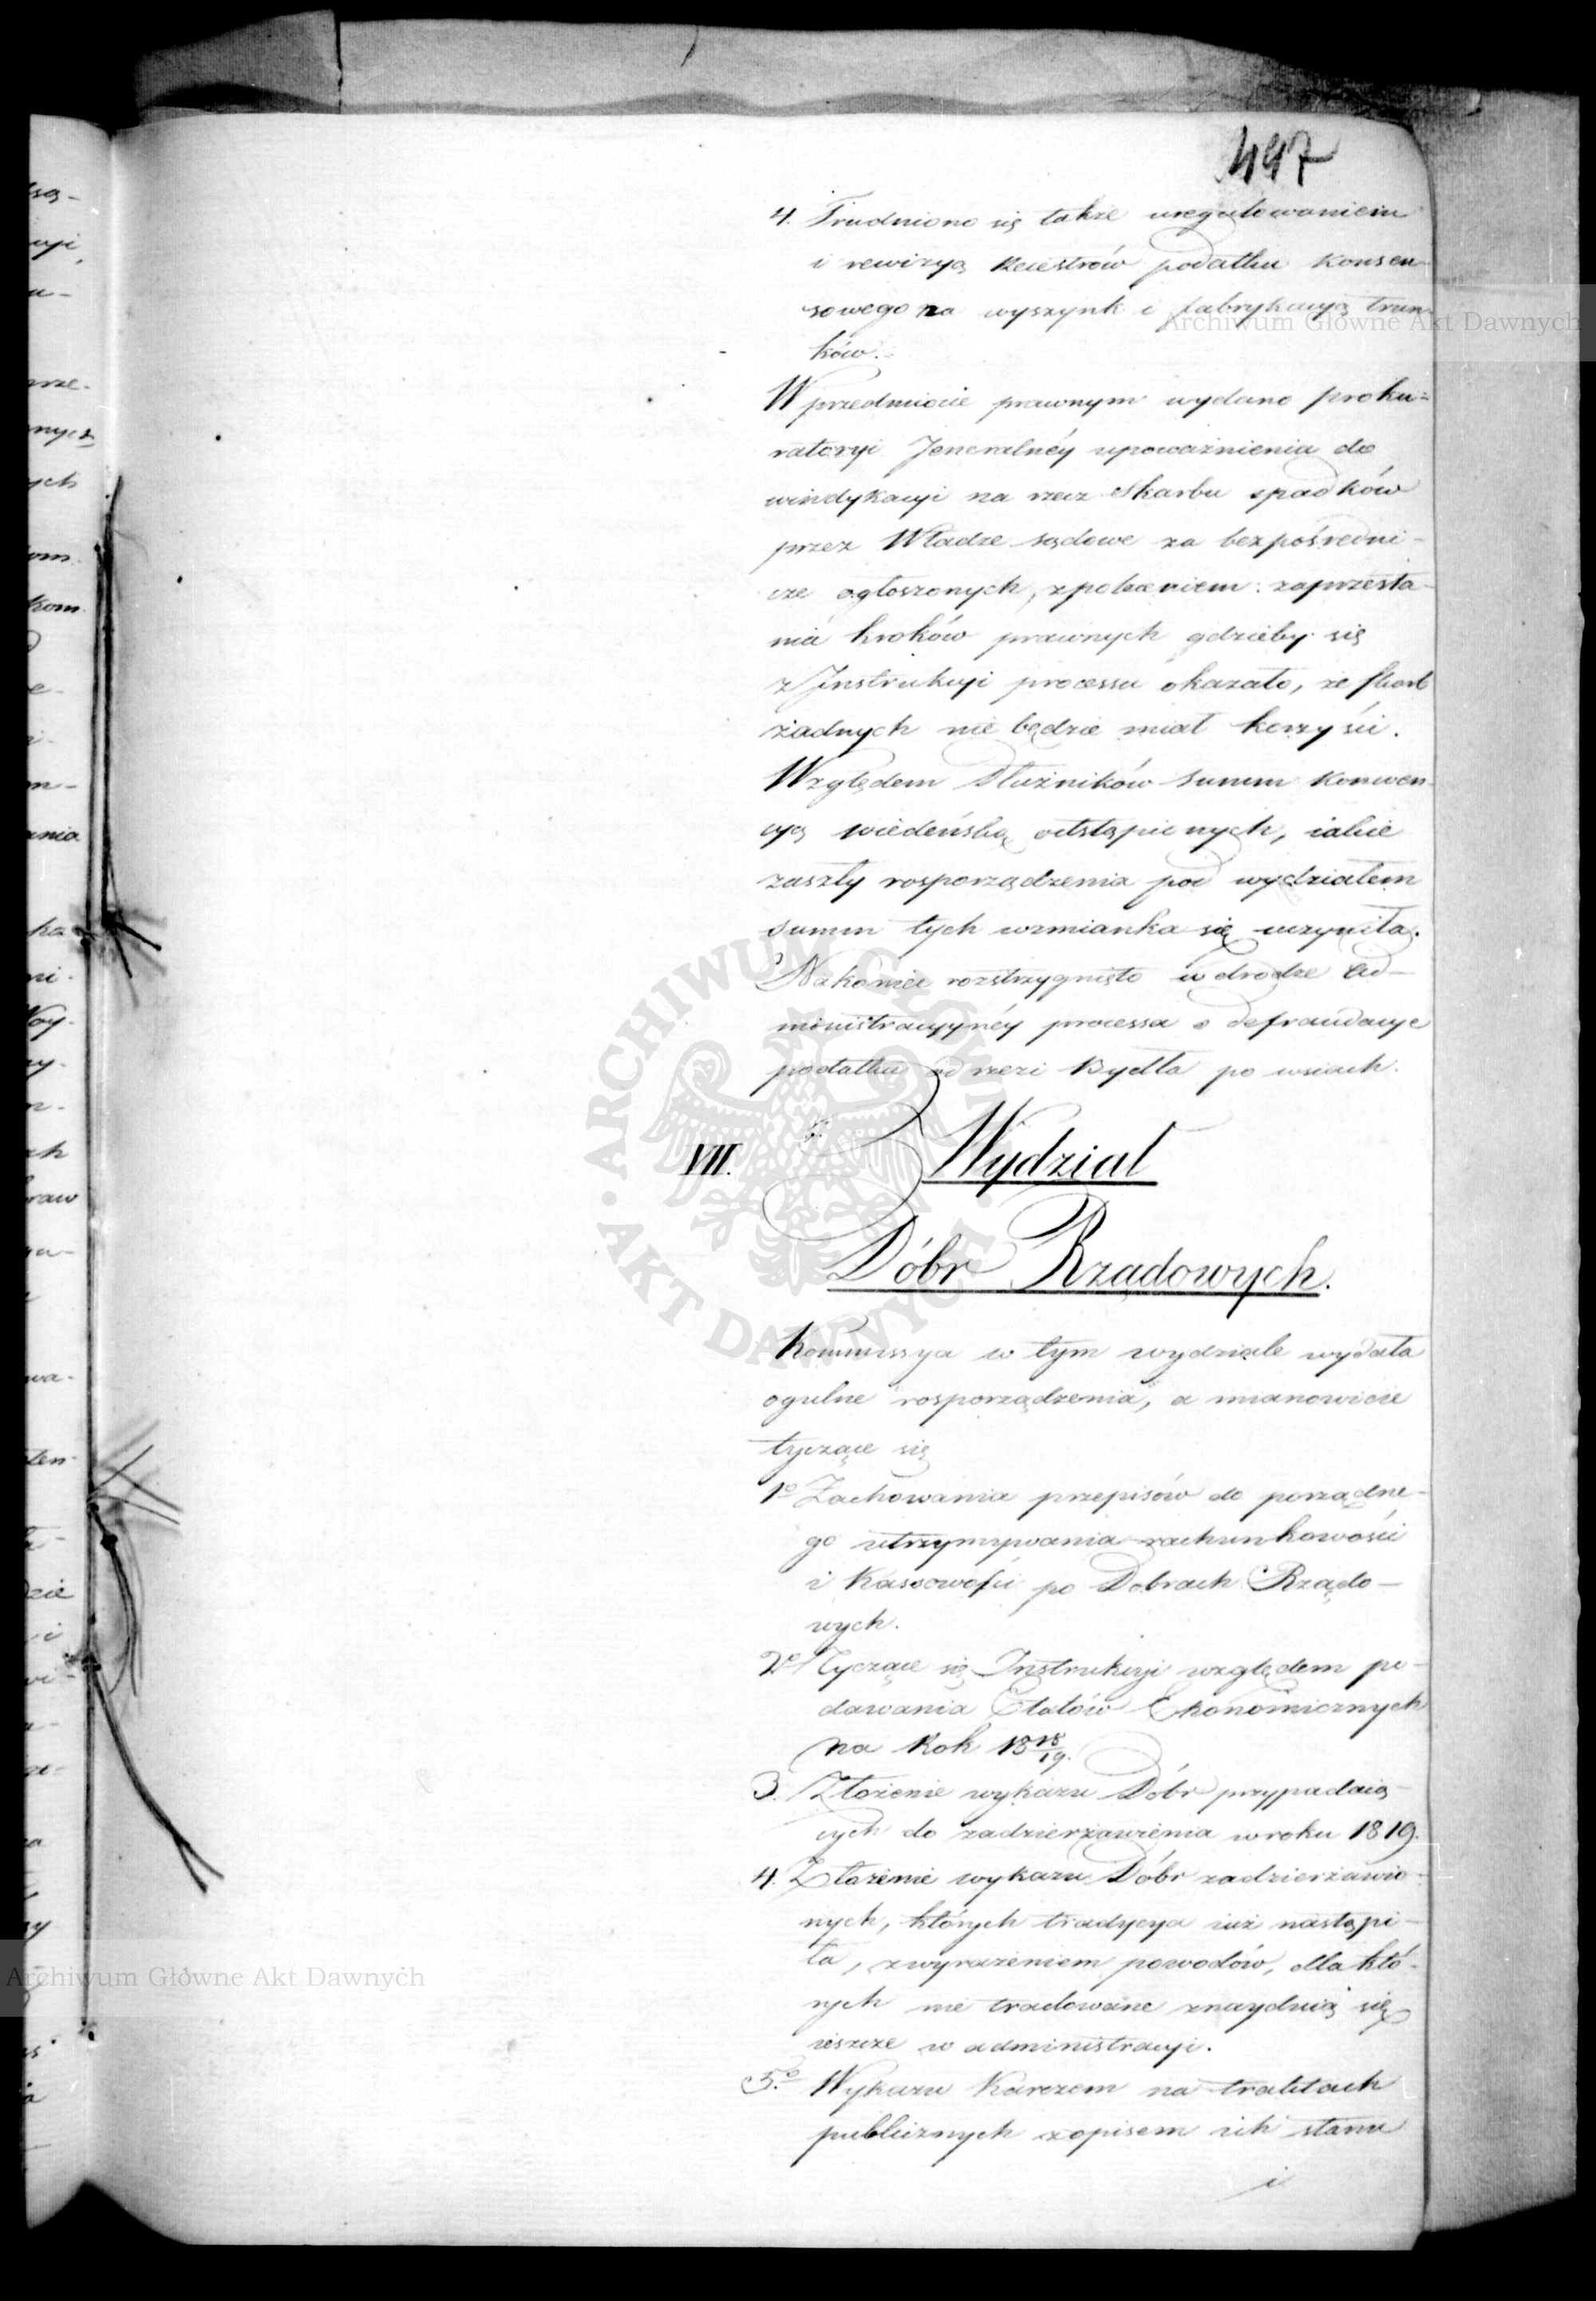 497
4. Trudniono się także uregulowaniem
i rewizyą Reiestrów podatku konsen-
sowego na wyszynk i fabrykacyą trun-
ków.
W przedmiocie prawnym wydano proku-
ratoryi Jeneralnéy upoważnienia do
windykacyi na rzecz Skarbu spadków
przez Władze sądowe za bezpośredni-
cze ogłoszonych, z poleceniem zaprzesta-
nia kroków prawnych gdzieby się
z Instrukcyi processu okazało, że skarb
żadnych nie będzie miał korzyści.
Względem Dłużników Summ konwen-
cyą wiedeńską odstąpionych, iakie
zaszły rosporządzenia pod wydziałem
summ tych wzmianka się uczyniła.
Nakoniec rozstrzygnięto w drodze Ad-
ministracyynéy processa o defraudacye
podatku od rzezi Bydła po wsiach.
VII. Wydział
Dóbr Rządowych.
Kommissya w tym wydziale wydała
ogulne rosporządzenia, a mianowicie
tyczące się
1º Zachowania przepisów do porządne-
go utrzymywania rachunkowości
i Kassowości po Dobrach Rządo-
wych.
2º Tyczące się Instrukcyi względem po-
dawania Etatów Ekonomicznych
na Rok 18 18/19.
3. Złożenie wykazu Dóbr przypadaią-
cych do zadzierżawienia w roku 1819.
4. Złożenie wykazu Dóbr zadzierżawio-
nych, których tradycya iuż nastąpi-
ła, z wyrażeniem powodów, dla któ-
rych nie tradowane znayduią się
ieszcze w administracyi.
5º Wykazu Karczem na traktach
publicznych z opisem ich stanu
i
Archiwum Główne Akt Dawnych
Archiwum Główne Akt Dawnych
ARCHIWUM GŁÓWNE AKT DAWNYCH